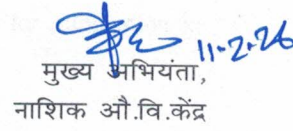 11-2-26
मुख्य अभियंता,
नाशिक औ.वि.केंद्र